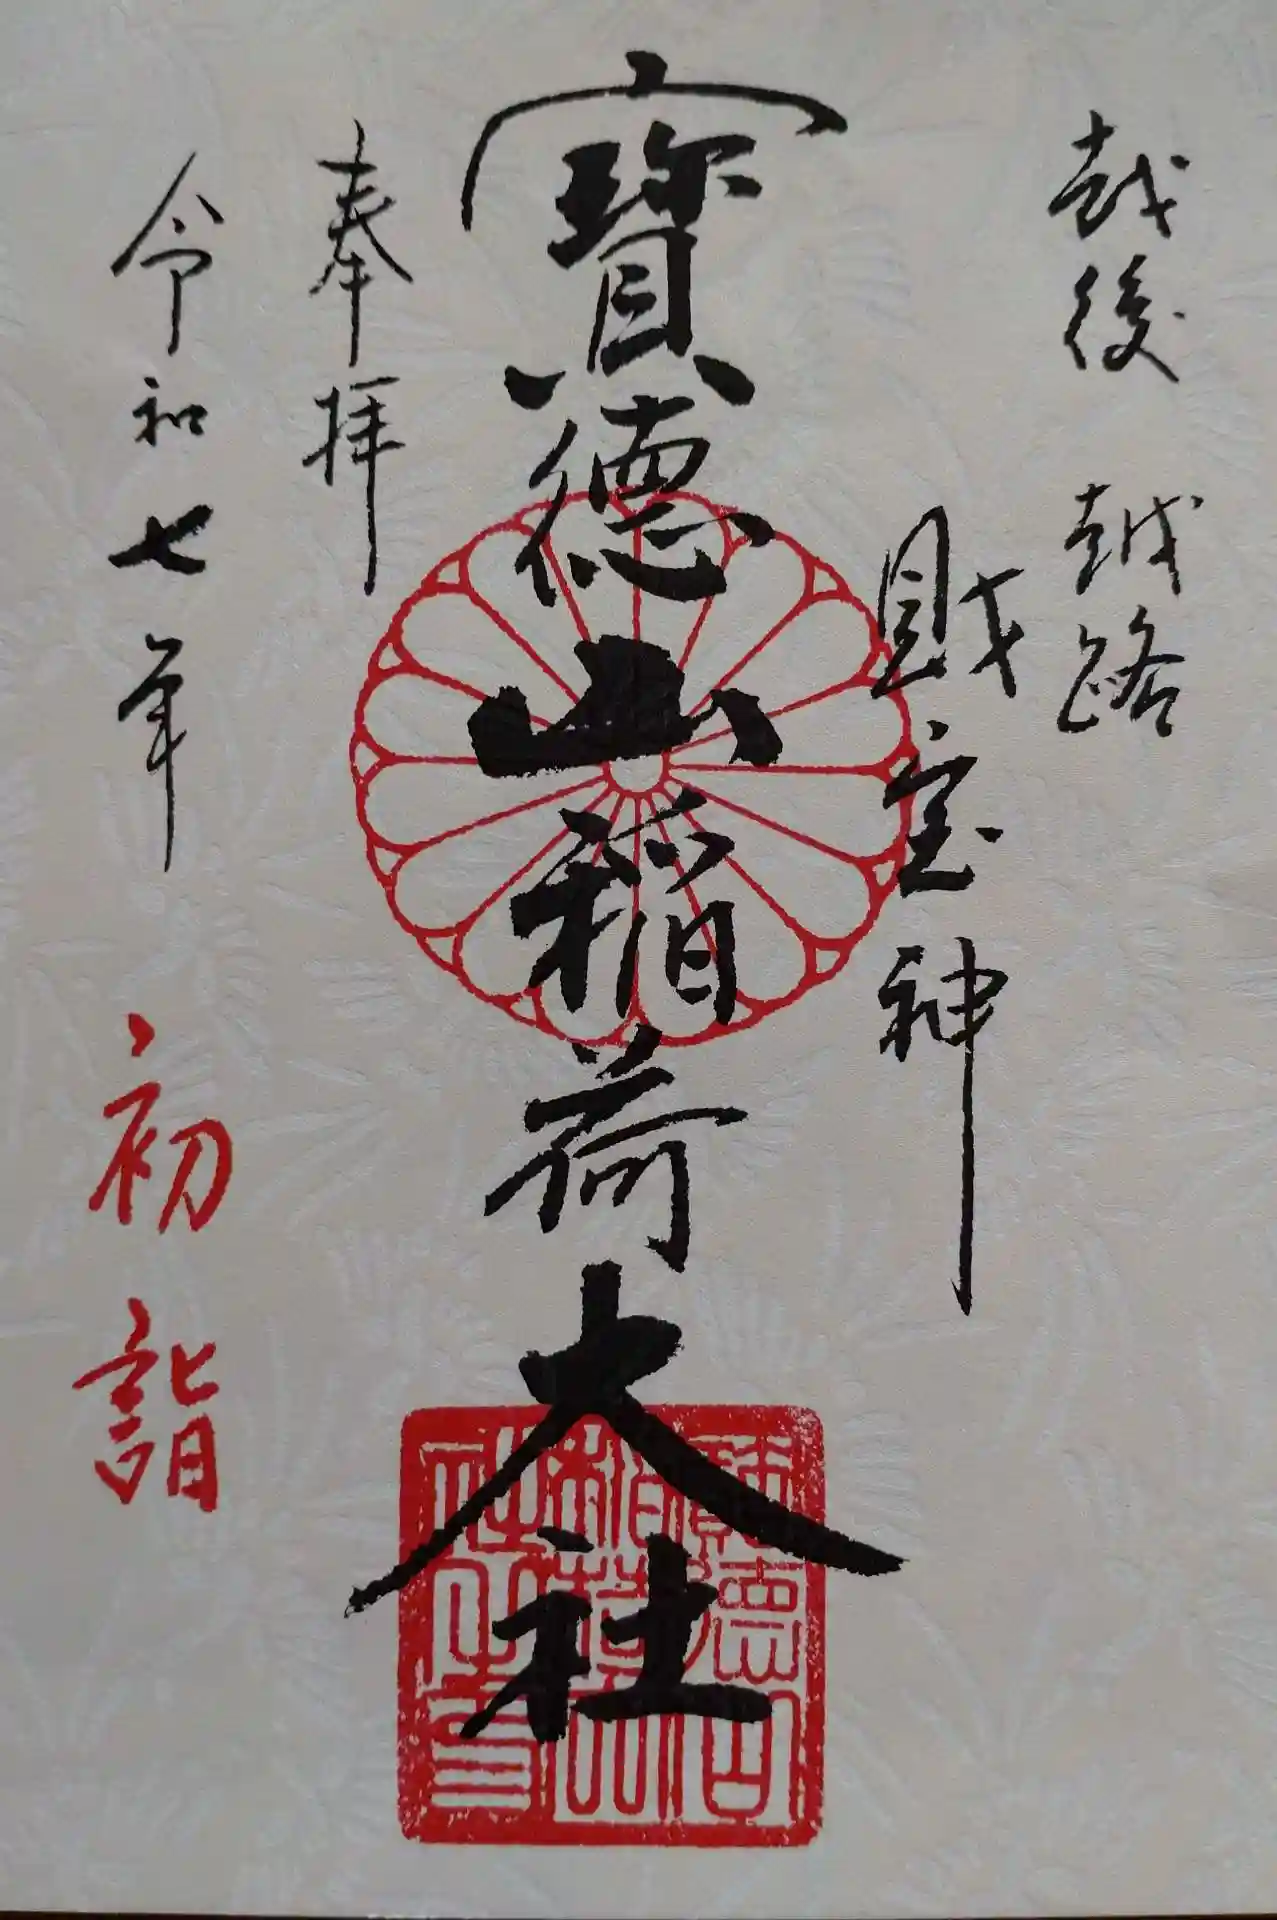 越後 越路
財宝神
寳德山稲荷大社
奉拝
令和七年 初詣